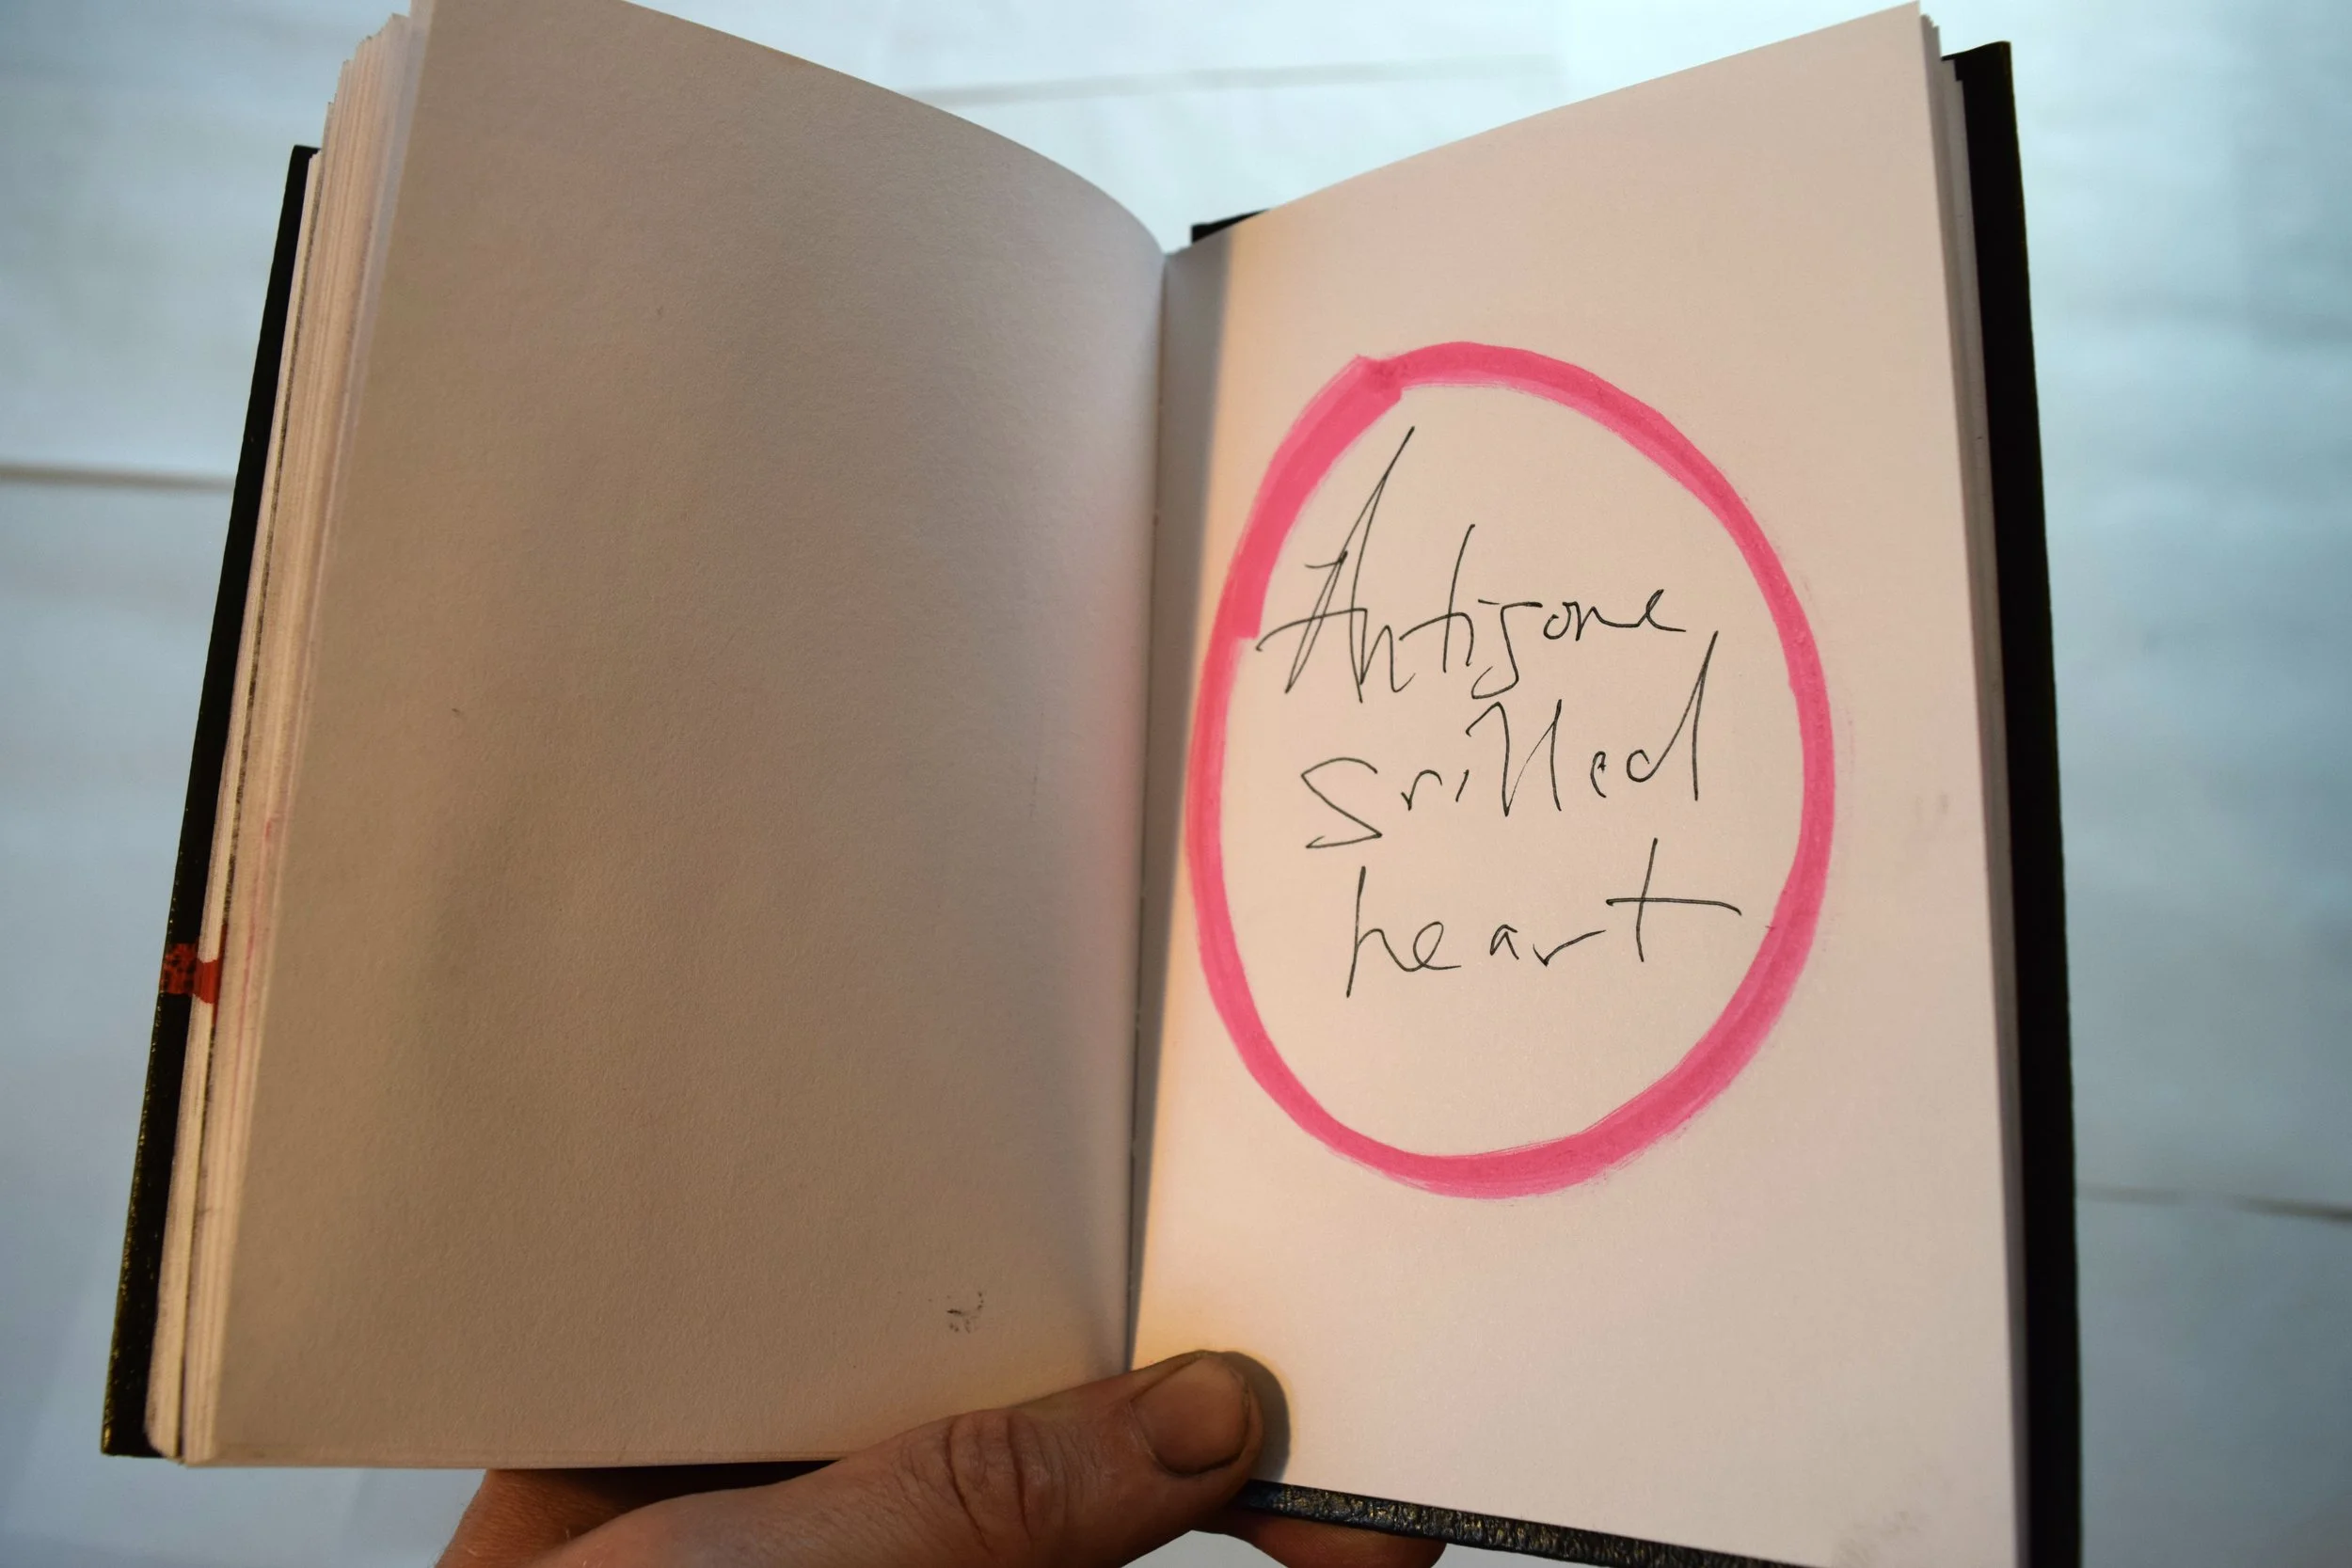 Antigone
Srilled
heart